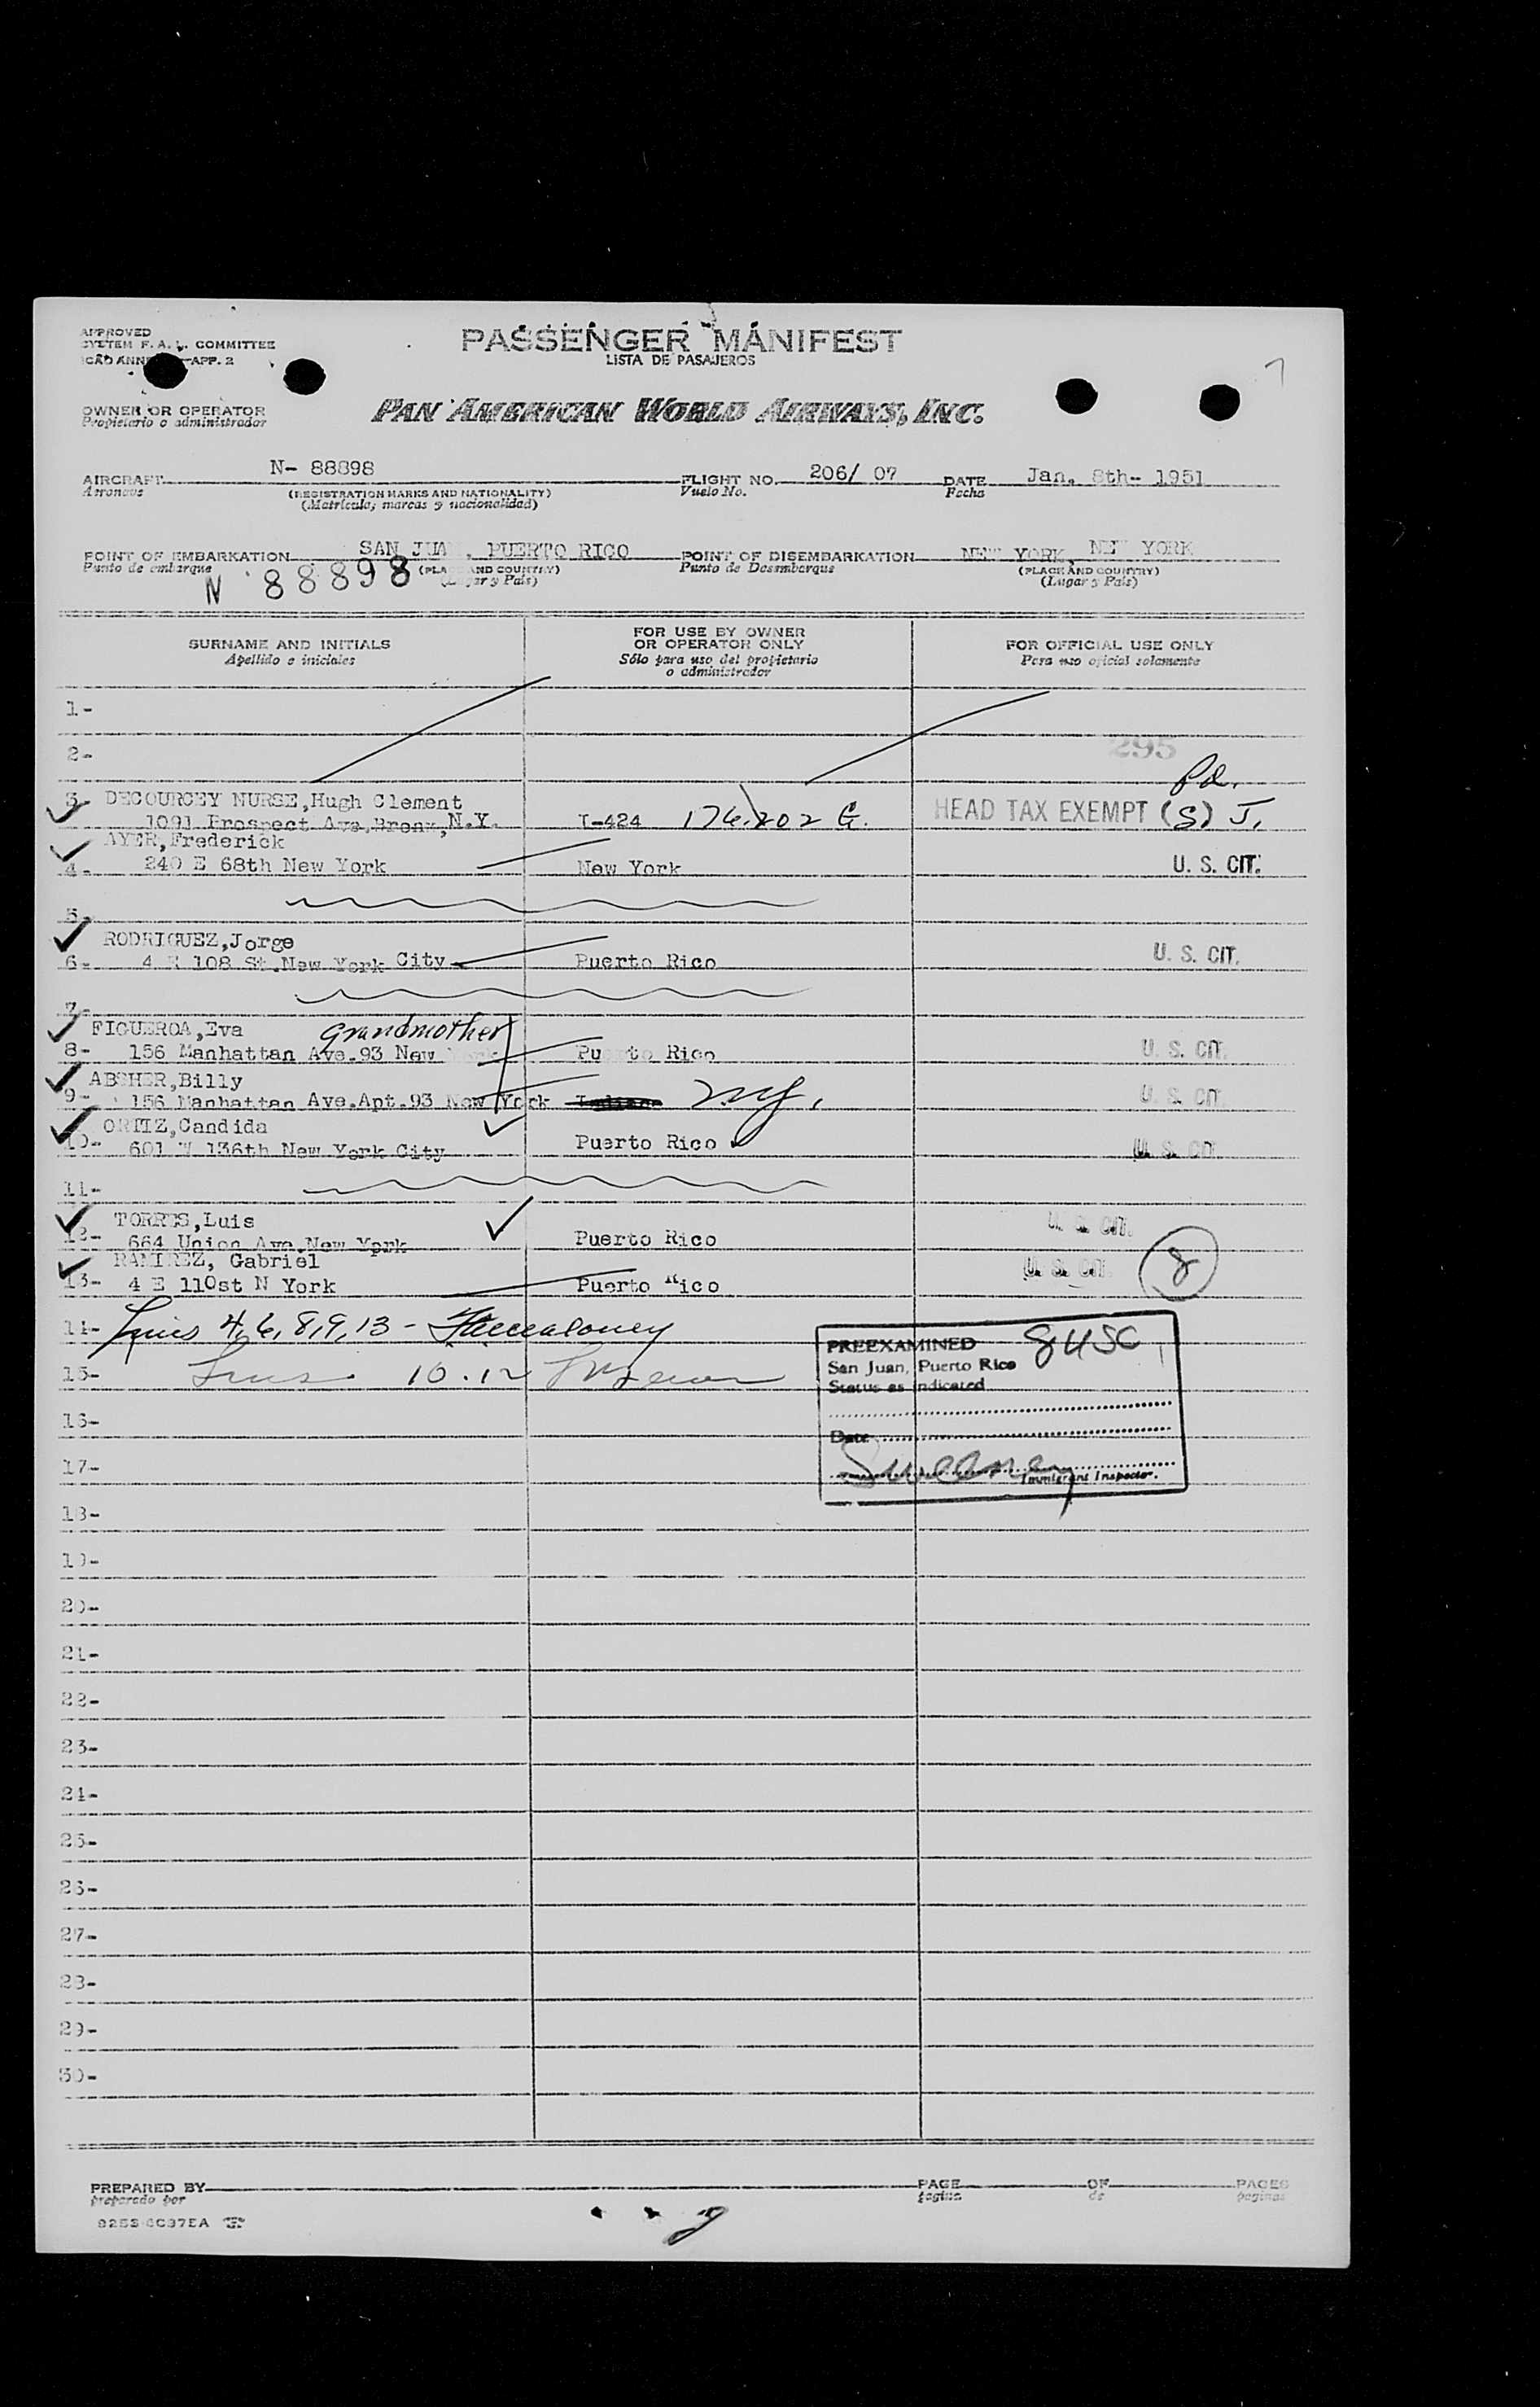 APPROVED
SYSTEM F. A. L. COMMITTEE
ICAO ANNEX APP. 2
PASSENGER MANIFEST
LISTA DE PASAJEROS
OWNER OR OPERATOR
Propietario o administrador
PAN AMERICAN WORLD AIRWAYS, INC.
AIRCRAFT N- 88898 FLIGHT NO. 206/ 07 DATE Jan. 8th- 1951
Aeronave (REGISTRATION MARKS AND NATIONALITY) Vuelo No. Fecha
(Matrícula, marcas y nacionalidad)
POINT OF EMBARKATION SAN JUAN, PUERTO RICO POINT OF DISEMBARKATION NEW YORK, NEW YORK
Punto de embarque (PLACE AND COUNTRY) Punto de Desembarque (PLACE AND COUNTRY)
N 88898 (Lugar y País) (Lugar y País)
SURNAME AND INITIALS FOR USE BY OWNER OR OPERATOR ONLY FOR OFFICIAL USE ONLY
Apellido e iniciales Sólo para uso del propietario o administrador Para uso oficial solamente
1-
2- 295
Pd.
3- DECOURCEY NURSE,Hugh Clement
1091 Prospect Ave,Bronx,N.Y. I-424 176,202 G. HEAD TAX EXEMPT (S) J.
AYER,Frederick
4- 240 E 68th New York New York U. S. CIT.
5-
RODRIGUEZ,Jorge
6- 4 E 108 St.New York City Puerto Rico U. S. CIT.
7-
FIGUEROA,Eva grandmother
8- 156 Manhattan Ave.93 New York Puerto Rico U. S. CIT.
ABSHER,Billy
9- 156 Manhattan Ave.Apt.93 New York Indiana N.Y. U. S. CIT.
ORTIZ,Candida
10- 601 W 136th New York City Puerto Rico U. S. CIT.
11-
TORRES,Luis
12- 664 Union Ave.New York Puerto Rico U. S. CIT.
RAMIREZ, Gabriel
13- 4 E 110st N York Puerto Rico U. S. CIT. 8
14- Lines 4,6,8,9,13 -
15- Lines 10.12
PREEXAMINED 8 USC
San Juan, Puerto Rico
Status as indicated
Date
Immigrant Inspector.
16-
17-
18-
19-
20-
21-
22-
23-
24-
25-
26-
27-
28-
29-
30-
PREPARED BY PAGE OF PAGES
preparado por pagina de paginas